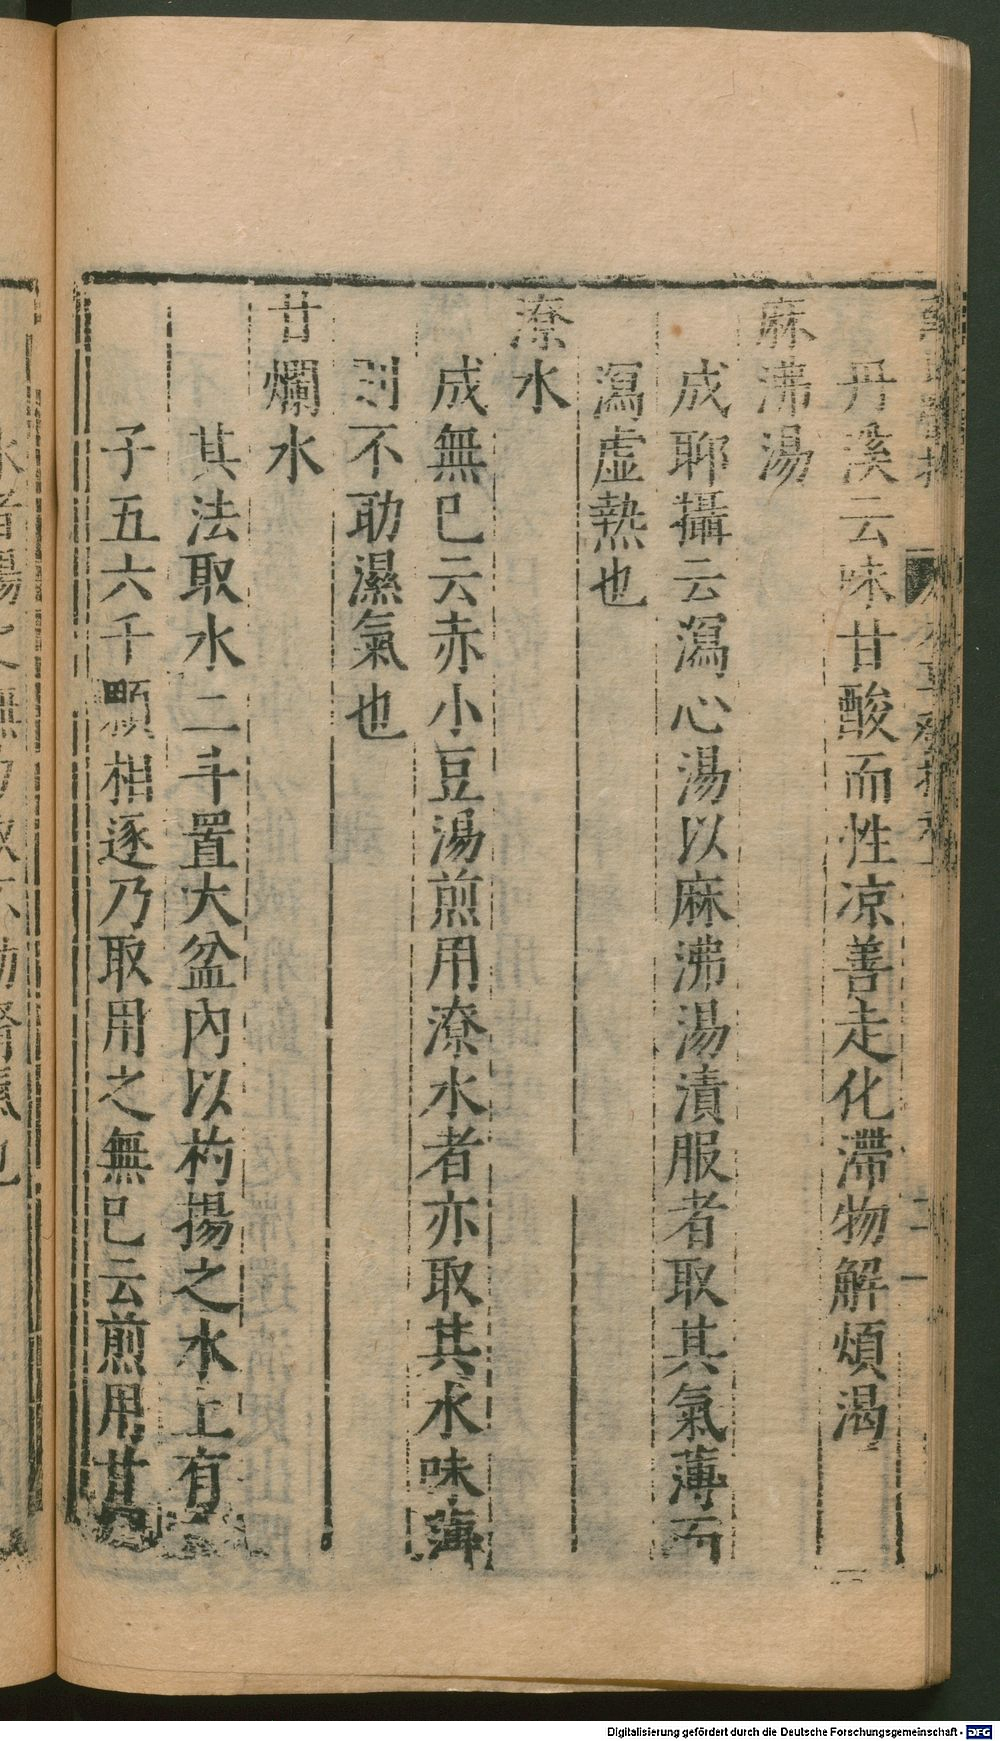 丹溪云味甘酸而性凉善走化滯物解煩渴
麻沸湯
成聊攝云瀉心湯以麻沸湯漬服者取其氣薄而
瀉虛熱也
潦水
成無已云赤小豆湯煎用潦水者亦取其水味薄
則不助濕氣也
甘爛水
其法取水二斗置大盆內以杓揚之水上有
子五六千顆相逐乃取用之無已云煎用甘
Digitalisierung gefördert durch die Deutsche Forschungsgemeinschaft - DFG